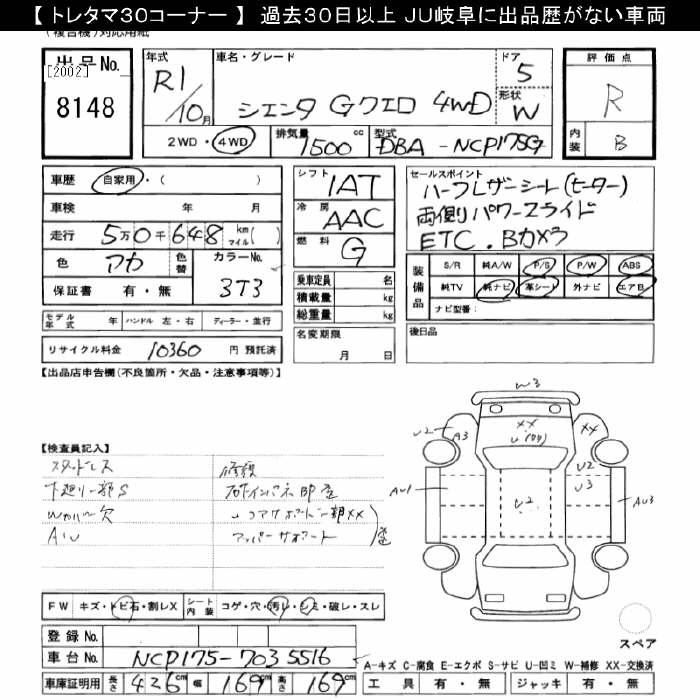 【 トレタマ30コーナー 】 過去30日以上 JU岐阜に出品歴がない車両
(複合機)対応用紙
出品No.
[2002]
8148
年式
R1/10月
車名・グレード
シエンタ Gクエロ 4WD
ドア
5
形状
W
2WD・4WD
排気量
1500 cc
型式
DBA-NCP175G
評価点
R
内装
B
車歴 自家用・( )
車検 年 月
走行 5万0千648 km マイル( )
色 アカ 色替 カラーNo. 3T3
保証書 有・無
シフト 1AT
冷房 AAC
燃料 G
乗車定員 名
積載量 kg
総重量 kg
セールスポイント
ハーフレザーシート(ヒーター)
両側パワースライド
ETC.Bカメラ
装備品
S/R 純A/W P/S P/W ABS
純TV 純ナビ 革シート 外ナビ エアB
ナビ型番:
モデル年式 年 ハンドル 左・右 ディーラー・並行
リサイクル料金 10360 円 預託済
名変期限
月 日
後日品
【出品店申告欄(不良箇所・欠品・注意事項等)】
【検査員記入】
スタッドレス
下廻り一部S
AU
修積
アッパーサポート
W3
U2
A3
XX
XX
U2
U3
AU1
U2
AU3
FW キズ・トビ石・割レX シート内装 コゲ・穴・汚レ・シミ・破レ・スレ
登録No.
車台No. NCP175-7035516
車庫証明用 長さ 426cm 幅 169cm 高さ 169cm
スペア
A-キズ C-腐食 E-エクボ S-サビ U-凹ミ W-補修 XX-交換済
工具 有・無 ジャッキ 有・無